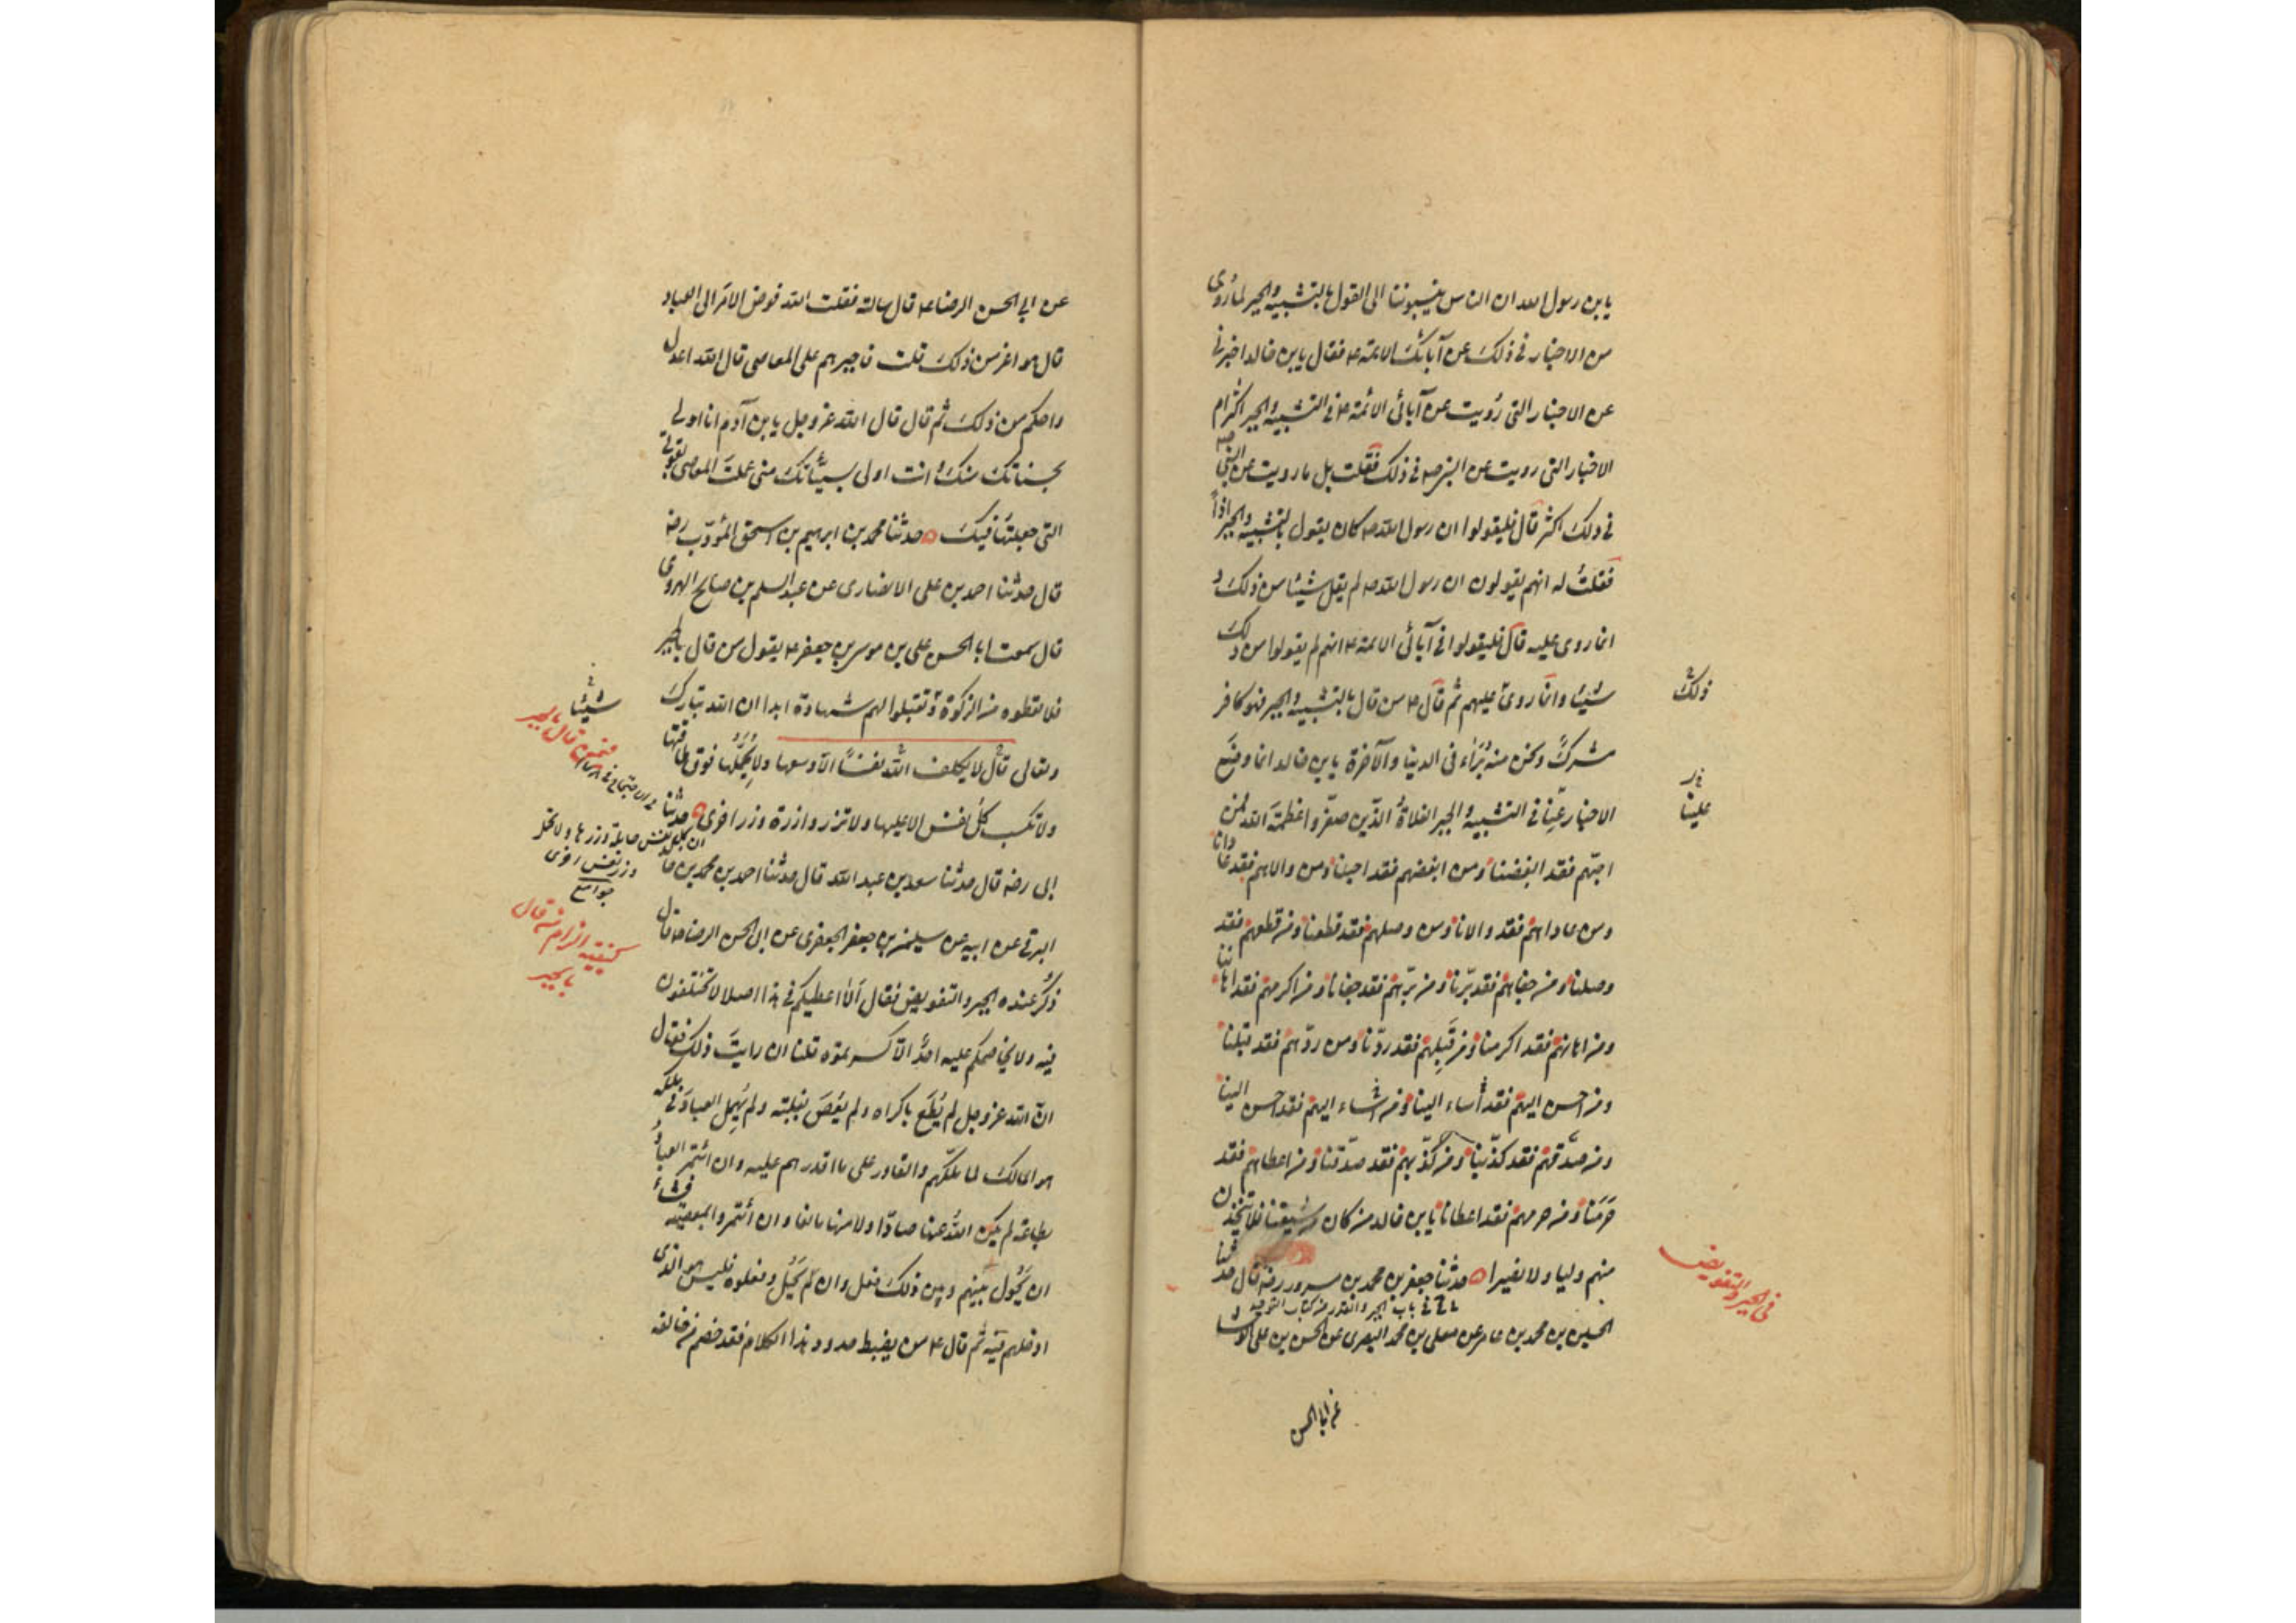 يا بن رسول الله ان الناس ينسبوننا الى القول بالتشبيه والجبر لما روى
من الاخبار في ذلك عن آبائك الائمة ع فقال يا بن خالد اخبرني
عن الاخبار التي رُويت عن آبائي الائمة ع في التشبيه والجبر اكثر ام
الاخبار التي رويت عن النبي ص في ذلك فقلت بل ما رويت عن النبي ص
في ذلك اكثر قال فليقولوا ان رسول الله ص كان يقول بالتشبيه والجبر اذاً
فقلتُ له انهم يقولون ان رسول الله ص لم يقل شيئا من ذلك و
انما روى عليه قال فليقولوا في آبائي الائمة ع انهم لم يقولوا من ذلك
شيئا وانما روى عليهم ثم قال ع من قال بالتشبيه والجبر فهو كافر
مشرك ونحن منه بُرَآء في الدنيا والآخرة يا بن خالد انما وضع
الاخبار عنّا في التشبيه والجبر الغلاةُ الذّين صغّروا عظمَة الله فمن
احبّهم فقد ابغضنا ومن ابغضهم فقد احبنا ومن والاهم فقد عادانا
ومن عاداهم فقد والانا ومن وصلهم فقد قطعنا ومن قطعهم فقد
وصلنا ومن جفاهم فقد برّنا ومن برّهم فقد جفانا ومن اكرمهم فقد اهاننا
ومن اهانهم فقد اكرمنا ومن قَبِلهم فقد ردّنا ومن ردّهم فقد قبلنا
ومن احسن اليهم فقد أساء الينا ومن اساء اليهم فقد احسن الينا
ومن صدّقهم فقد كذّبنا ومن كذّبهم فقد صدّقنا ومن اعطاهم فقد
حَرَمَنا ومن حرمهم فقد اعطانا يا بن خالد من كان من شيعتنا فلا يتخذن
منهم وليا ولا نصيرا حدثنا جعفر بن محمد بن مسرور رضه قال حدثنا
باب الجبر والقدر من كتاب التوحيد
الحسين بن محمد بن عامر عن معلى بن محمد البصرى عن الحسن بن على الوشا
ذلك
علينا
في الجبر والتفويض
عن ابي الحسن الرضا ع قال سالته فقلت الله فوض الامر الى العباد
قال هو اعز من ذلك قلت فاجبرهم على المعاصى قال الله اعدل
واحكم من ذلك ثم قال قال الله عز وجل يا بن آدم انا اولى
بحسناتك منك وانت اولى بسيّئاتك منى عملتَ المعاصى بقوتى
التى جعلتها فيك حدثنا محمد بن ابرهيم بن اسحق المؤدّب رضه
قال حدثنا احمد بن على الانصارى عن عبد السلم بن صالح الهروى
قال سمعت ابا الحسن على بن موسى بن جعفر ع يقول من قال بالجبر
فلا تعطوه من الزكوة ولا تقبلوا لهم شهادة ابدا ان الله تبارك
وتعالى قال لا يكلف الله نفسًا الا وسعها ولا يُحَمِّلُها فوق طاقتها
ولا تكسب كلُّ نفس الا عليها ولا تزر وازرة وزر اخرى حدثنا
ابى رضه قال حدثنا سعد بن عبد الله قال حدثنا احمد بن محمد بن خالد
البرقى عن ابيه عن سليمن بن جعفر الجعفرى عن ابى الحسن الرضا ع قال
ذُكر عنده الجبر والتفويض فقال ألا اعطيكم فى هذا اصلا لا تختلفون
فيه ولا يخاصمكم عليه احدٌ الا كسرتموه قلنا ان رايتَ ذلك فقال
انّ الله عز وجل لم يُطَع باكراه ولم يُعْصَ بغلبته ولم يُهمِل العبادَ فى ملكه
هو المالك لما ملّكهم والقادر على ما اقدرهم عليه وان ائتمر العبادُ
بطاعته لم يكن اللهُ عنها صادّا ولا منها مانعا وان ائتمروا بمعصيته فشاءَ
ان يَحُولَ بينهم وبين ذلك فعل وان لم يَحُلْ وفعلوه فليس هو الذى
ادخلهم فيه ثم قال ع من يضبط حدود هذا الكلام فقد خصم من خالفه
شيئا
فيمن قال بالجبر
ان كل نفس حاملة وزرها ولا تحمل
وزر نفس اخرى
جوامع
كيفيه الزام من قال
بالجبر